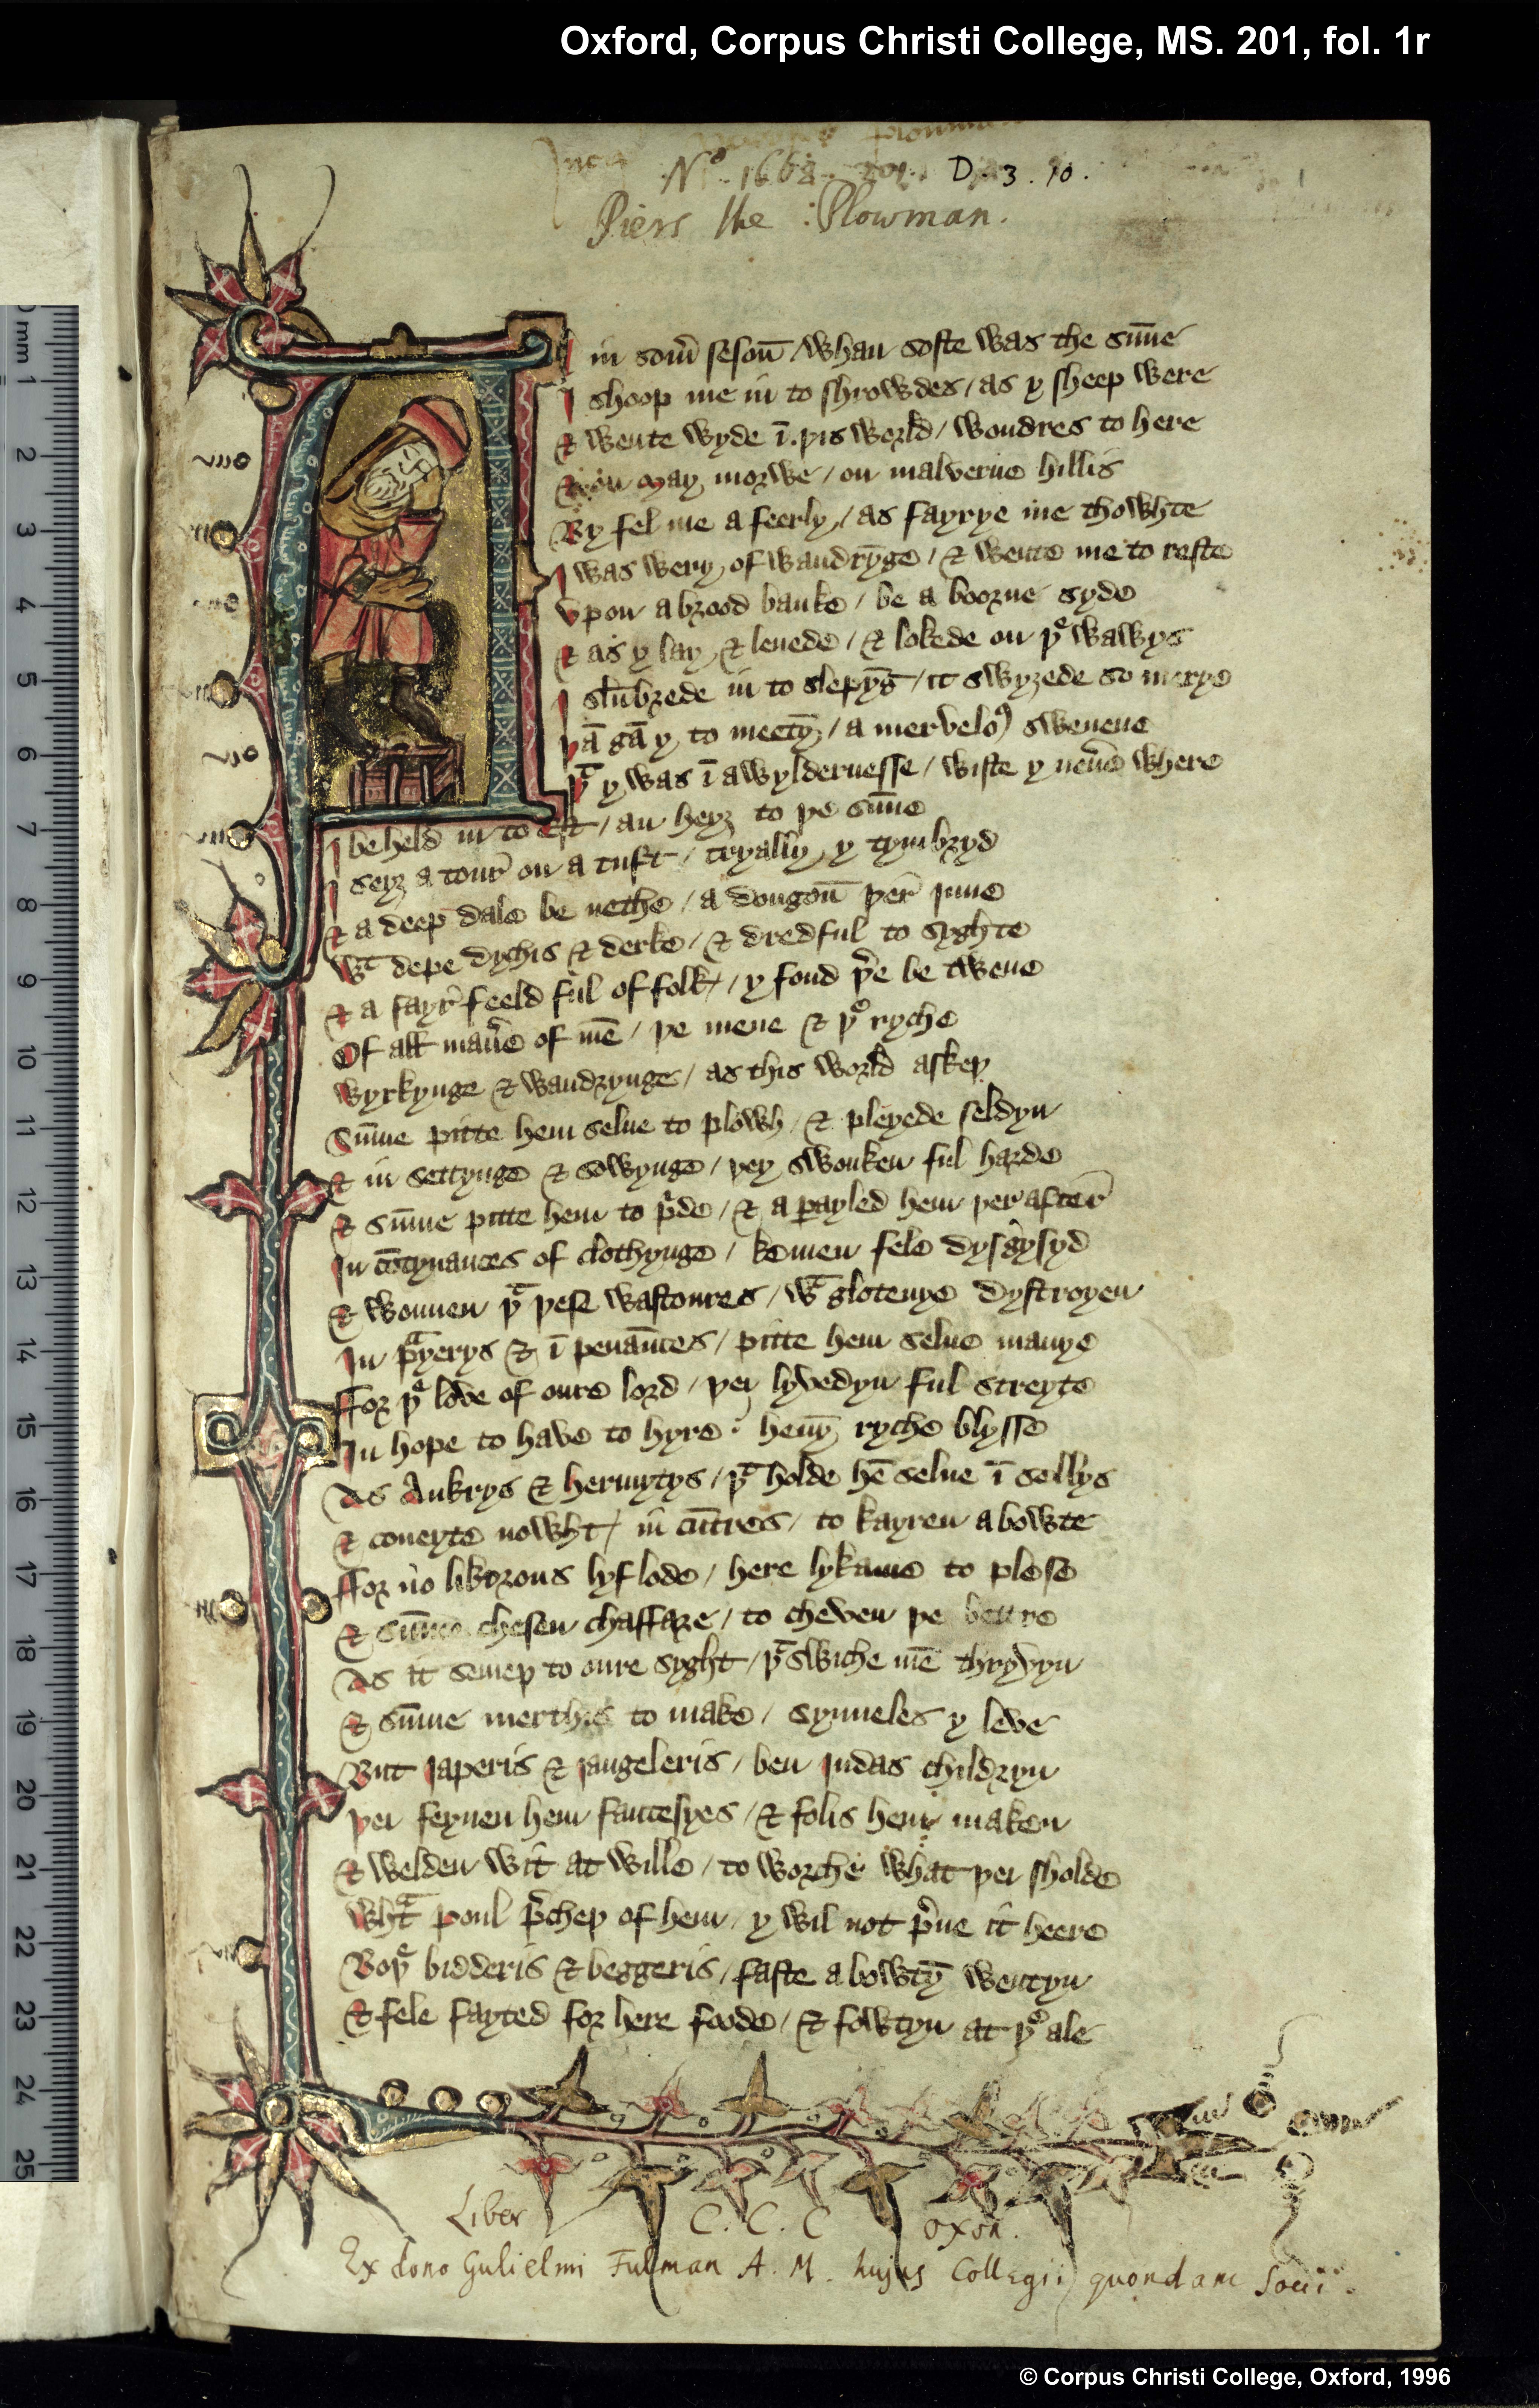 Oxford, Corpus Christi College, MS. 201, fol. 1r
Nᵒ. 166 D. 3. 10.
Piers the Plowman.
in som̄ sesoū / whan softe was the sūne
I shoop me in to shrowdes / as y sheep were
& wente wyde ī þis world / wondres to here
& on may morwe / on malverne hillis
By fel me a feerly / as fayrye me thowhte
I was wery of wandrȳge / & wente me to reste
vpon a brood banke / be a boorne syde
& as y lay & lenede / & lokede on þᵉ watrys
I slūbrede in to slepȳg / it swyȝede so merye
þā gā y to meetȳ / a mervelo⁹ swevene
þᵗ y was ī a wyldernesse / wiste y nev̄e where
I beheld in to Est / an heyȝ to þe sūne
I seyȝ a tour on a tuft / tryally y tymbryd
& a deep dale be nethe / a dongoū þer Inne
wᵗ depe dychis & derke / & dredful to syghte
& a fayr feeld ful of folk / y fond þ̄e be twene
Of all man̄e of mē / þe mene & þᵉ ryche
wyrkynge & wandrynge / as this world askeþ
Sūme putte hem selue to plowh / & pleyede seldyn
& in settynge & sowynge / þey swonken ful harde
& sūme putte hem to p̄de / & a payled hem þer after
In cōtynances of clothynge / komen fele dysgysyd
& wonnen þᵗ þese wastoures / wᵗ glotenye dystroyen
In pᵃyerys & ī penāces / putte hem selue manye
ffor þᵉ love of oure lord / þei lyvedyn ful streyte
In hope to have to hyre : hevȳ ryche blysse
As Ankrys & hermytys / þᵗ holde hē selue ī sellys
& coveyte nowht / in cūtres / to kayren a bowte
ffor no likerous lyflode / here lykame to plese
& sūme chesen chaffare / to cheven þe bettre
As it semeþ to oure syght / þᵗ swiche mē thryvyn
& sūme merthis to make / synneles y leve
But Japeris & Jangeleris / ben Judas childryn
þei feynen hem fantesyes / & folis hem maken
& welden wit at wille / to worche what þei sholde
whᵗ poul p̄cheþ of hem / y wil not p̄ue it heere
Boþᵉ bidderis & beggeris / faste a bowtȳ wentyn
& fele fayted for here foode / & fowtyn at þᵉ ale
Liber C. C. C oxon.
Ex dono Gulielmi Fulman A. M. hujus Collegii quondam Socii.
© Corpus Christi College, Oxford, 1996
0 mm 1 2 3 4 5 6 7 8 9 10 11 12 13 14 15 16 17 18 19 20 21 22 23 24 25